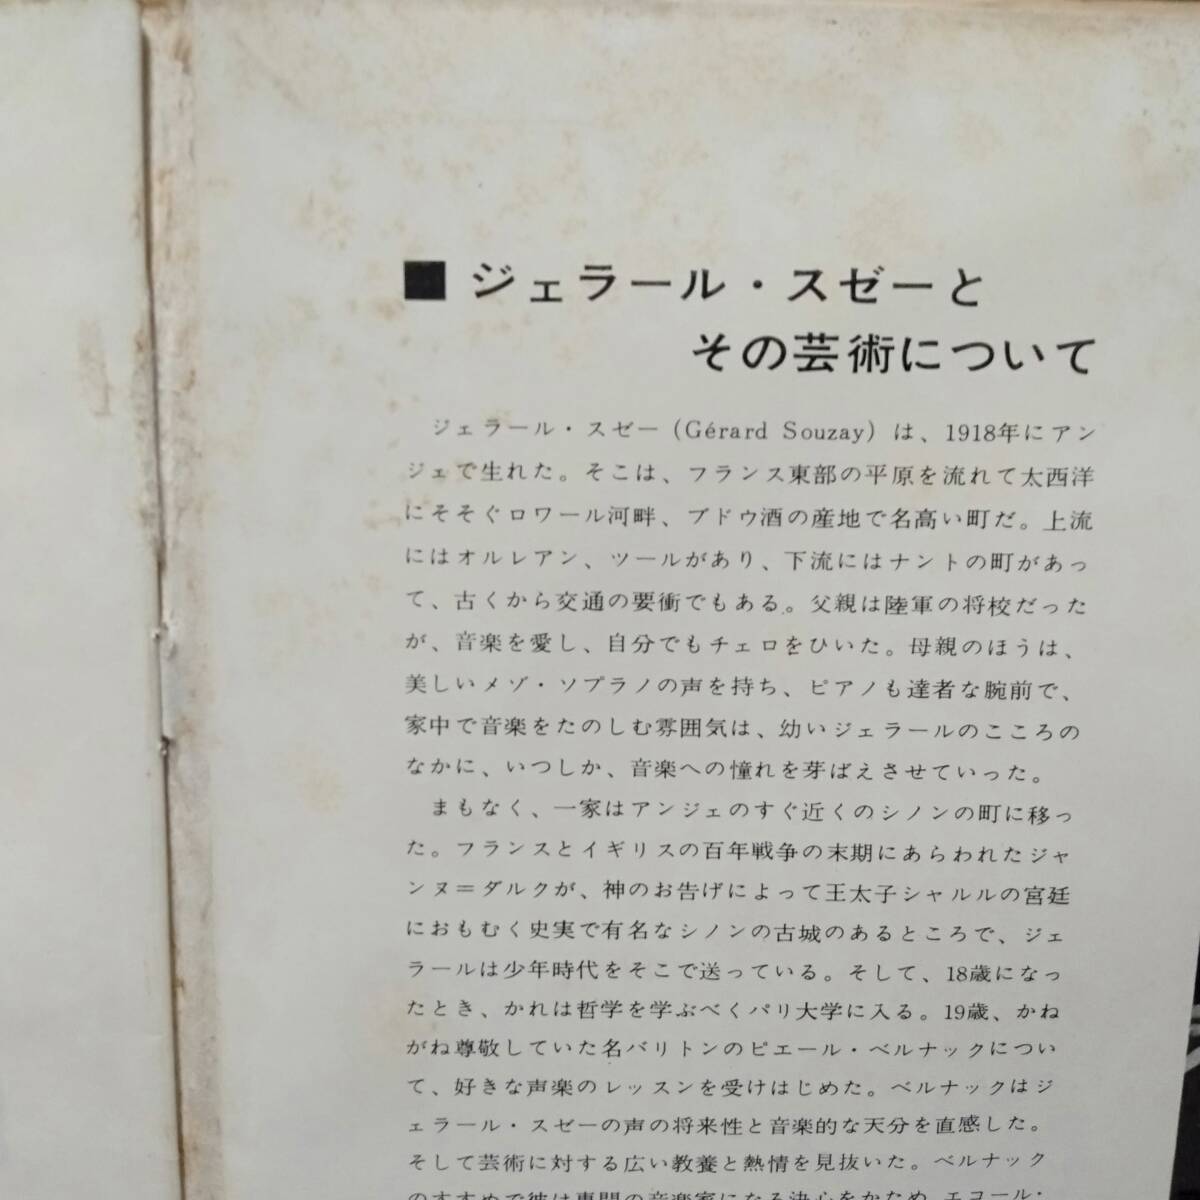 ■ ジェラール・スゼーと
その芸術について
ジェラール・スゼー (Gérard Souzay) は、1918年にアン
ジェで生れた。そこは、フランス東部の平原を流れて太西洋
にそそぐロワール河畔、ブドウ酒の産地で名高い町だ。上流
にはオルレアン、ツールがあり、下流にはナントの町があっ
て、古くから交通の要衝でもある。父親は陸軍の将校だった
が、音楽を愛し、自分でもチェロをひいた。母親のほうは、
美しいメゾ・ソプラノの声を持ち、ピアノも達者な腕前で、
家中で音楽をたのしむ雰囲気は、幼いジェラールのこころの
なかに、いつしか、音楽への憧れを芽ばえさせていった。
まもなく、一家はアンジェのすぐ近くのシノンの町に移っ
た。フランスとイギリスの百年戦争の末期にあらわれたジャ
ンヌ＝ダルクが、神のお告げによって王太子シャルルの宮廷
におもむく史実で有名なシノンの古城のあるところで、ジェ
ラールは少年時代をそこで送っている。そして、18歳になっ
たとき、かれは哲学を学ぶべくパリ大学に入る。19歳、かね
がね尊敬していた名バリトンのピエール・ベルナックについ
て、好きな声楽のレッスンを受けはじめた。ベルナックはジ
ェラール・スゼーの声の将来性と音楽的な天分を直感した。
そして芸術に対する広い教養と熱情を見抜いた。ベルナック
のすすめで彼は専門の音楽家になる決心をかため、エコール・